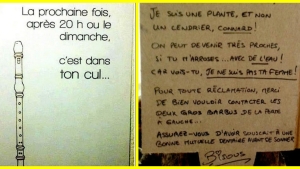 La prochaine fois,
après 20 h ou le
dimanche,
c'est dans
ton cul...
JE SUIS UNE PLANTE, ET NON
UN CENDRIER, CONNARD !
ON PEUT DEVENIR TRÈS PROCHES,
SI TU M'ARROSES... AVEC DE L'EAU !
CAR VOIS-TU, JE NE SUIS PAS TA FEMME !
POUR TOUTE RÉCLAMATION, MERCI
DE BIEN VOULOIR CONTACTER LES
DEUX GROS BARBUS DE LA PORTE
À GAUCHE...
ASSUREZ-VOUS D'AVOIR SOUSCRIT À UNE
BONNE MUTUELLE DEMAINE AVANT DE SONNER
Bisous